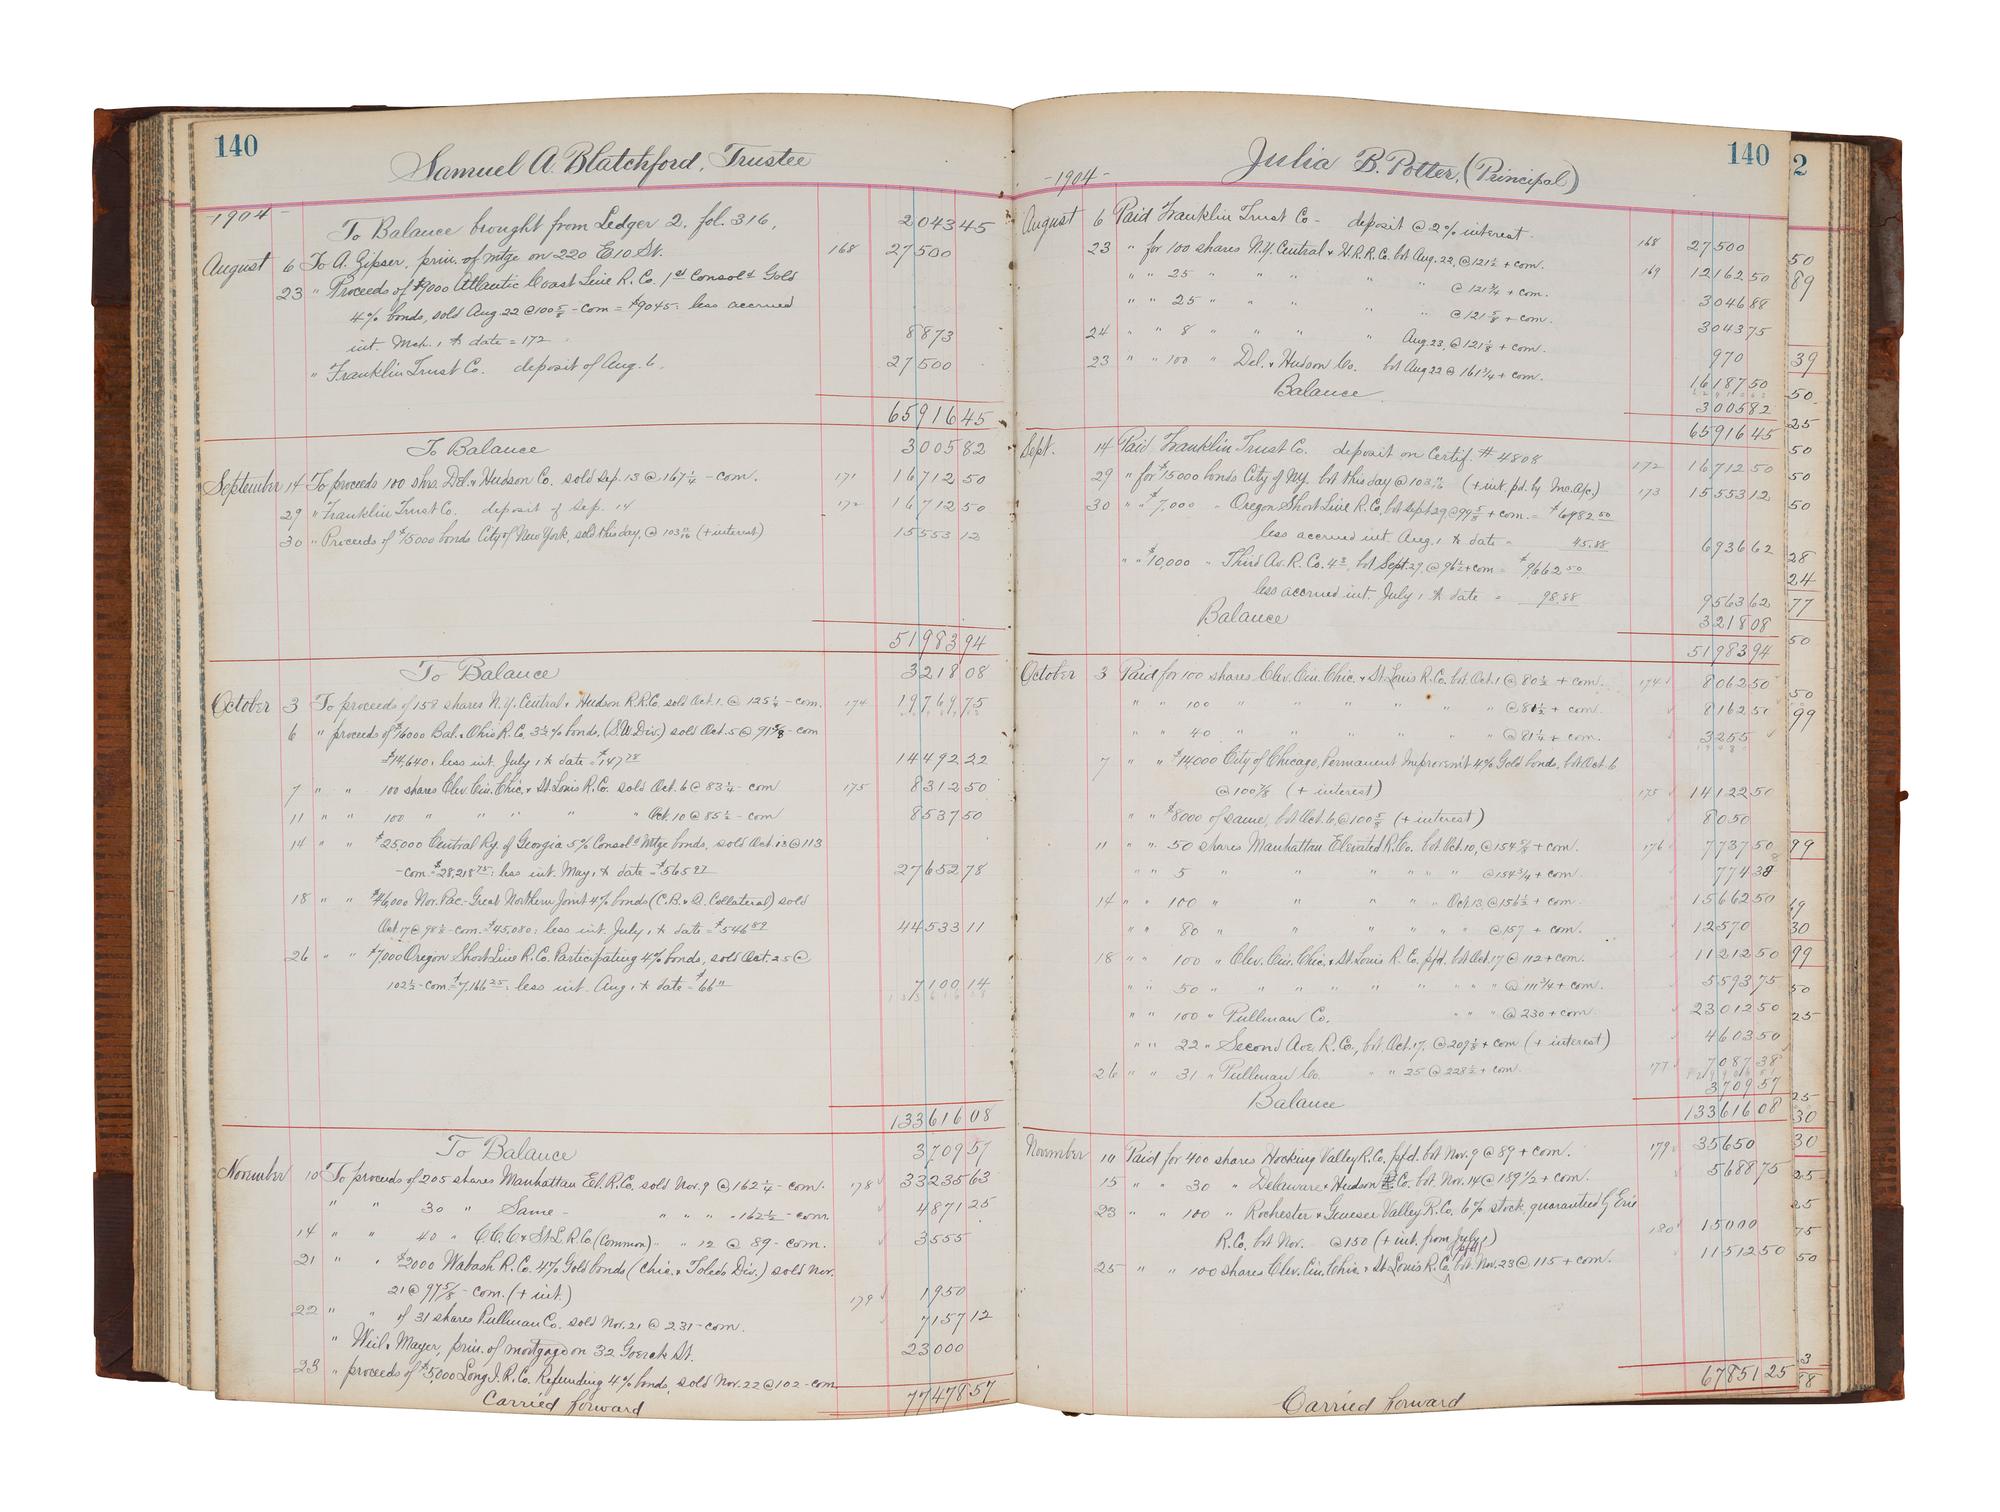 140
Samuel A. Blatchford, Trustee
1904
To Balance brought from Ledger 2, fol. 316, 2043 45
August 6 To A. Gipser, prin. of mtge on 220 E 10 St. 168 27500
23 " Proceeds of $9000 Atlantic Coast Line R. Co. 1st Consol'd Gold
4% bonds, sold Aug. 22 @ 100 5/8 - com = $9045: less accrued
int. Mch. 1 to date = 172 8873
" Franklin Trust Co. deposit of Aug. 6, 27500
65916 45
To Balance 3005 82
September 14 To proceeds 100 shrs. Del. & Hudson Co. sold Sep. 13 @ 167 1/4 - com. 171 16712 50
29 " Franklin Trust Co. deposit of Sep. 14 172 16712 50
30 " Proceeds of $15000 bonds City of New York, sold this day, @ 103 11/16 (+ interest) 15553 12
51983 94
To Balance 3218 08
October 3 To proceeds of 158 shares N.Y. Central & Hudson R.R.Co. sold Oct. 1. @ 125 1/4 - com. 174 19769 75
6 " proceeds of $16000 Bal. & Ohio R. Co. 3 1/2 % bonds, (S.W. Div.) sold Oct. 5 @ 91 5/8 - com
= $14,640: less int. July 1 to date = $147 78 14492 22
7 " " 100 shares Clev. Cin. Chic. & St. Louis R. Co. sold Oct. 6 @ 83 1/4 - com 175 8312 50
11 " " 100 " " " " " Oct. 10 @ 85 1/2 - com 8537 50
14 " " $25,000 Central Ry. of Georgia 5% Consol'd Mtge bonds, sold Oct. 13 @ 113
- com = $28,218 75: less int. May 1 to date = $565 97 27652 78
18 " " $46,000 Nor. Pac.-Great Northern Joint 4% bonds (C.B. & Q. Collateral) sold
Oct. 17 @ 98 1/8 - com. = $45,080: less int. July 1 to date = $546 89 44533 11
26 " " $7,000 Oregon Short Line R. Co. Participating 4% bonds, sold Oct. 25 @
102 1/2 - com = $7,166 25: less int. Aug 1 to date = $66 11 7100 14
133616 08
To Balance 3709 57
November 10 To proceeds of 205 shares Manhattan El. R. Co. sold Nov. 9 @ 162 1/4 - com. 178 33235 63
" " 30 " Same - " " " - 162 1/2 - com. 4871 25
14 " " 40 " C.C.C. & St. L. R. Co. (Common) - " 12 @ 89 - com. 3555
21 " " $2000 Wabash R. Co. 4% Gold bonds (Chic. & Toledo Div.) sold Nov.
21 @ 97 5/8 - com. (+ int.) 179 1950
22 " " of 31 shares Pullman Co. sold Nov. 21 @ 231 - com. 7157 12
" Weil & Mayer, prin. of mortgage on 32 Goerck St. 23000
23 " proceeds of $5,000 Long I. R. Co. Refunding 4% bonds, sold Nov. 22 @ 102 - com
Carried forward 77478 57
Julia B. Potter, (Principal)
140
- 1904 -
August 6 Paid Franklin Trust Co - deposit @ 2% interest. 168 27500
23 " for 100 shares N.Y. Central & H.R.R.Co. bot Aug. 22, @ 121 1/2 + com. 169 12162 50
" " 25 " " " " @ 121 3/4 + com. 3046 88
" " 25 " " " " @ 121 5/8 + com. 3043 75
24 " " 8 " " " " Aug. 23, @ 121 1/8 + com. 970
23 " " 100 " Del. & Hudson Co. bot Aug 22 @ 161 3/4 + com. 16187 50
Balance 3005 82
65916 45
Sept. 14 Paid Franklin Trust Co. deposit on Certif. # 4808 172 16712 50
29 " for $15000 bonds City of N.Y. bot this day @ 103 11/16 (+ int. pd. by Inc. A/c.) 173 15553 12
30 " " $7,000 " Oregon Short Line R. Co. bot Sept. 29 @ 99 5/8 + com. = $6982 50
less accrued int. Aug. 1 to date = 45.88 6936 62
" " $10,000 " Third Av. R. Co. 4s, bot Sept. 29, @ 96 1/2 + com = $9,662 50
less accrued int. July 1 to date = 98.88 9563 62
Balance 3218 08
51983 94
October 3 Paid for 100 shares Clev. Cin. Chic. & St. Louis R. Co. bot Oct. 1 @ 80 1/2 + com. 174 8062 50
" " 100 " " " " " @ 81 1/2 + com. 8162 50
" " 40 " " " " " @ 81 1/4 + com. 3255
7 " " $14000 City of Chicago, Permanent Improvem't 4% Gold bonds, bot Oct. 6
@ 100 7/8 (+ interest) 175 14122 50
" " $8000 of same, bot Oct. 6, @ 100 5/8 (+ interest) 8050
11 " " 50 shares Manhattan Elevated R. Co. bot Oct. 10, @ 154 5/8 + com. 176 7737 50
" " 5 " " " " " @ 154 3/4 + com. 774 38
14 " " 100 " " " " " Oct. 13, @ 156 1/2 + com. 15662 50
" " 80 " " " " " @ 157 + com. 12570
18 " " 100 " Clev. Cin. Chic. & St. Louis R. Co. pfd. bot Oct. 17 @ 112 + com. 11212 50
" " 50 " " " " " " " " @ 111 3/4 + com. 5593 75
" " 100 " Pullman Co. " " " @ 230 + com. 23012 50
" " 22 " Second Ave. R. Co., bot. Oct. 17. @ 209 1/8 + com (+ interest) 4603 50
26 " " 31 " Pullman Co. " " 25 @ 228 1/2 + com. 177 7087 38
Balance 3709 57
133616 08
November 10 Paid for 400 shares Hocking Valley R. Co. pfd. bot Nov. 9 @ 89 + com. 179 35650
15 " " 30 " Delaware & Hudson Co. bot Nov. 14 @ 189 1/2 + com. 5688 75
23 " " 100 " Rochester & Genesee Valley R. Co. 6% stock, guaranteed by Erie
R. Co. bot Nov. @ 150 (+ int. from July 1) 180 15000
25 " " 100 shares Clev. Cin. Chic. & St. Louis R. Co. (pfd) bot. Nov. 23 @ 115 + com. 11512 50
67851 25
Carried forward
2
50
89
39
50
25
50
50
50
28
24
77
50
50
99
99
69
30
99
50
25
25
30
30
25
25
75
50